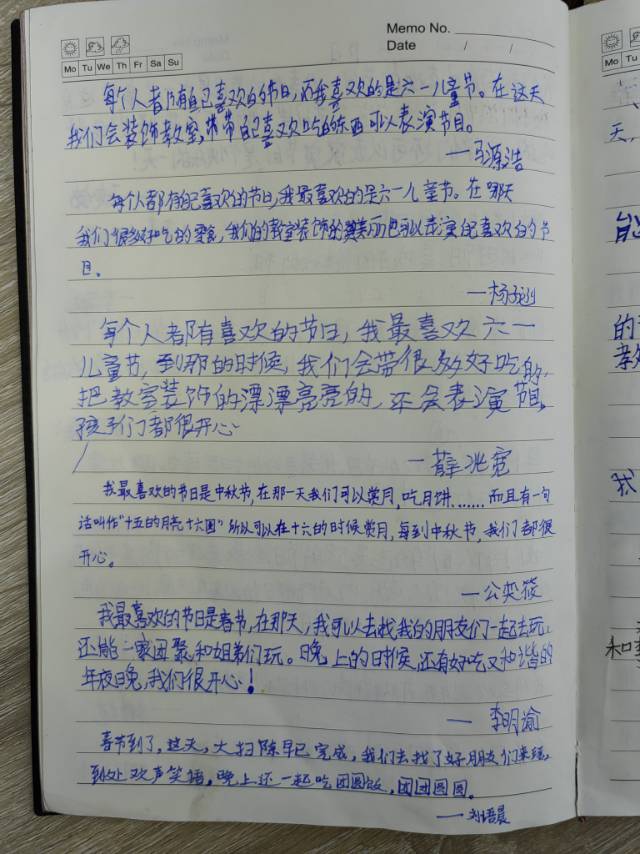 Memo No.
Date / /
Mo Tu We Th Fr Sa Su
每个人都有自己喜欢的节日,而我喜欢的是六一儿童节。在这天
我们会装饰教室,带自己喜欢吃的东西可以表演节目。
——马源浩
每个人都有自己喜欢的节日,我最喜欢的是六一儿童节。在那天
我们很多好吃的零食,我们的教室装饰的美丽也可以表演自己喜欢的节
目。
——杨
每个人都有喜欢的节日,我最喜欢六一
儿童节,到那的时候,我们会带很多好吃的,
把教室装饰的漂漂亮亮的,还会表演节目,
孩子们都很开心
——薛兆宽
我最喜欢的节日是中秋节,在那一天我们可以赏月,吃月饼……而且有一句
话叫作“十五的月亮十六圆”所以可以在十六的时候赏月,每到中秋节,我们都很
开心。
——公奕筱
我最喜欢的节日是春节,在那天,我可以去找我的朋友们一起去玩,
还能一家团聚和姐弟们玩。晚上的时候,还有好吃又和谐的
年夜晚,我们很开心!
——李明谕
春节到了,这天,大扫除早已完成,我们去找了好朋友们来玩,
到处欢声笑语,晚上还一起吃团圆饭,团团圆圆。
——刘语晨
天,
能
的
教
我
和